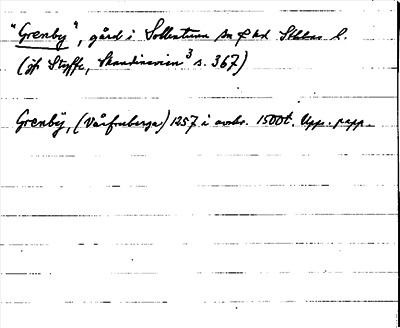 "Grenby", gård i Sollentuna sn o hd Sthlms l.
(jfr Styffe, Skandinavien³ s. 367)
Grenby, (Vårfruberga) 1257 i avskr. 1500t. Upp. papp.